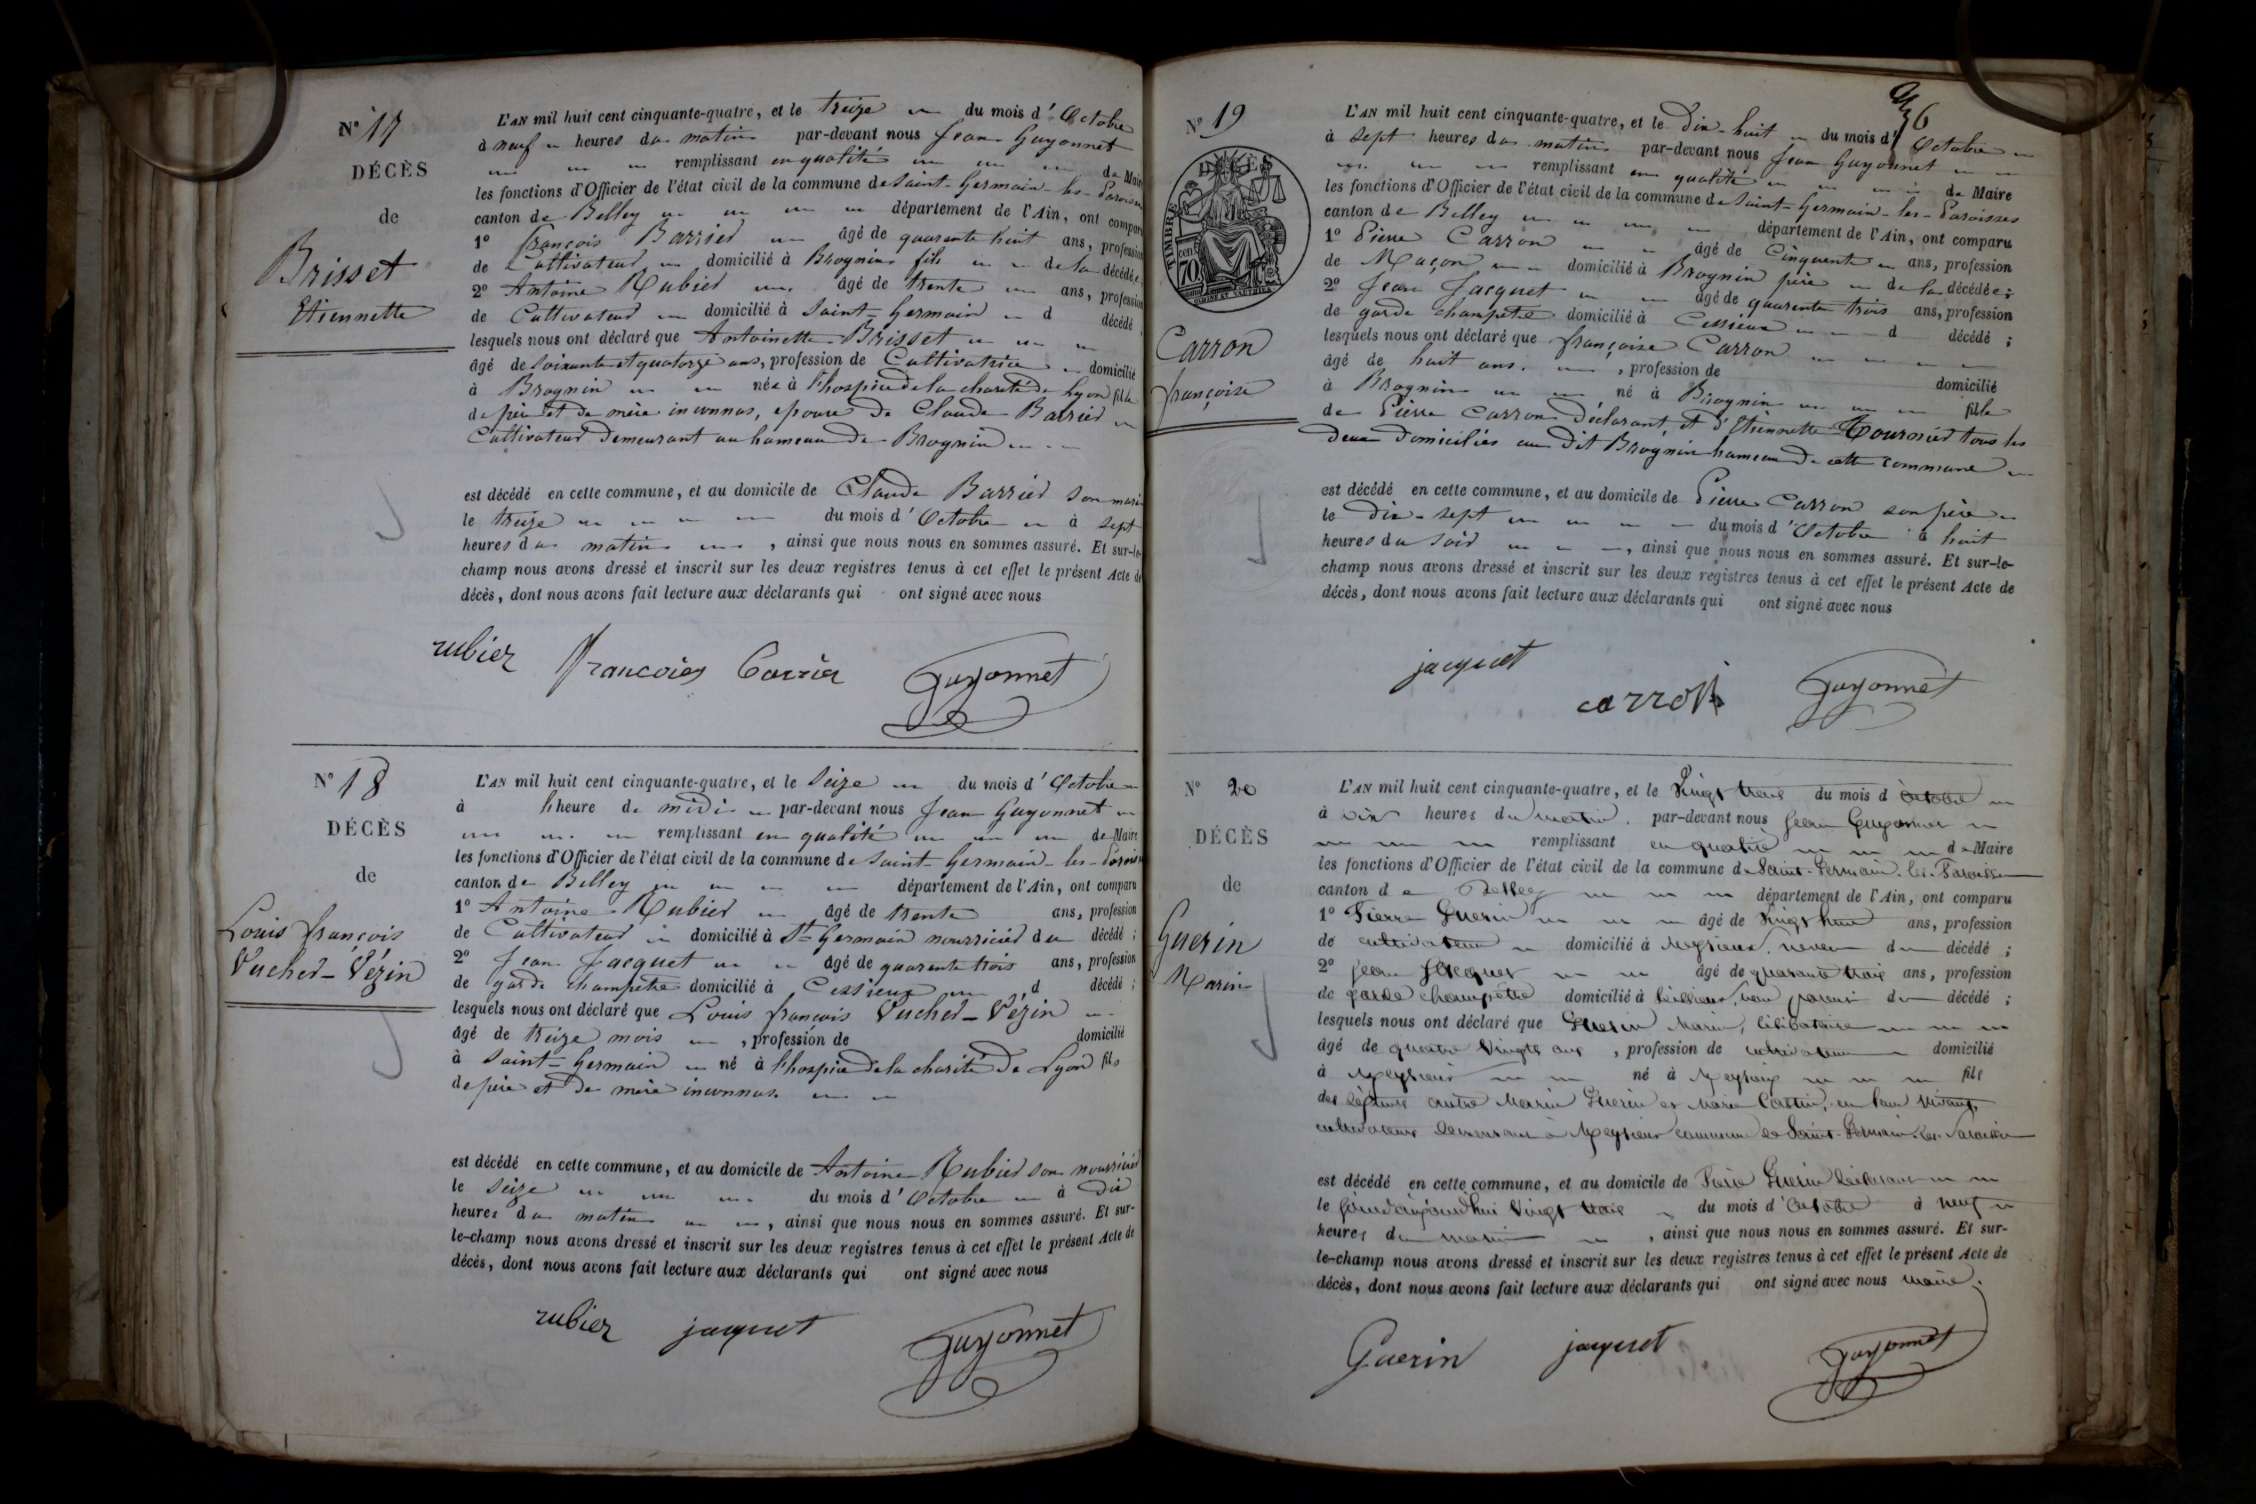 N° 17
DÉCÈS
de
Brisset
Etiennette
L'AN mil huit cent cinquante-quatre, et le treize du mois d'Octobre
à neuf heures du matin par-devant nous Jean Guyonnet
remplissant en qualité de Maire
les fonctions d'Officier de l'état civil de la commune de Saint-Germain-les-Paroisses
canton de Belley département de l'Ain, ont comparu
1° François Barrier âgé de quarante huit ans, profession
de Cultivateur domicilié à Brognin fils de la décédée
2° Antoine Rubier âgé de trente ans, profession
de Cultivateur domicilié à Saint-Germain d décédé
lesquels nous ont déclaré que Antoinette Brisset
âgé de soixante et quatorze ans, profession de Cultivatrice domicilié
à Brognin née à l'hospice de la charité de Lyon fille
de père et de mère inconnus, epouse de Claude Barrier
Cultivateur demeurant au hameau de Brognin
est décédé en cette commune, et au domicile de Claude Barrier son mari
le treize du mois d'Octobre à sept
heures du matin, ainsi que nous nous en sommes assuré. Et sur-le-
champ nous avons dressé et inscrit sur les deux registres tenus à cet effet le présent Acte de
décès, dont nous avons fait lecture aux déclarants qui ont signé avec nous
rubier Francoies Barrier Guyonnet
N° 18
DÉCÈS
de
Louis françois
Vucher-Vézin
L'AN mil huit cent cinquante-quatre, et le seize du mois d'Octobre
à l'heure de midi par-devant nous Jean Guyonnet
remplissant en qualité de Maire
les fonctions d'Officier de l'état civil de la commune de Saint-Germain-les-Paroisses
canton de Belley département de l'Ain, ont comparu
1° Antoine Rubier âgé de trente ans, profession
de Cultivateur domicilié à St Germain nourricier du décédé ;
2° Jean Jacquet âgé de quarante trois ans, profession
de garde champêtre domicilié à Cessieux d décédé ;
lesquels nous ont déclaré que Louis françois Vucher-Vézin
âgé de treize mois, profession de domicilié
à Saint-Germain né à l'hospice de la charité de Lyon fils
de père et de mère inconnus.
est décédé en cette commune, et au domicile de Antoine Rubier son nourricier
le seize du mois d'Octobre à dix
heures du matin, ainsi que nous nous en sommes assuré. Et sur-
le-champ nous avons dressé et inscrit sur les deux registres tenus à cet effet le présent Acte de
décès, dont nous avons fait lecture aux déclarants qui ont signé avec nous
rubier jacquet Guyonnet
N° 19
TIMBRE
70 cen
Carron
françoise
L'AN mil huit cent cinquante-quatre, et le Dix-huit du mois d'Octobre
à sept heures du matin par-devant nous Jean Guyonnet
remplissant en qualité de Maire
les fonctions d'Officier de l'état civil de la commune de Saint-Germain-les-Paroisses
canton de Belley département de l'Ain, ont comparu
1° Pierre Carron âgé de Cinquante ans, profession
de Maçon domicilié à Brognin père de la décédée ;
2° Jean Jacquet âgé de quarante trois ans, profession
de garde champêtre domicilié à Cessieux d décédé ;
lesquels nous ont déclaré que françoise Carron
âgé de huit ans, profession de domicilié
à Brognin né à Brognin fille
de Pierre Carron déclarant, et d'Etiennette Tournier tous les
deux domiciliés au dit Brognin hameau de cette commune
est décédé en cette commune, et au domicile de Pierre Carron son père
le Dix-sept du mois d'Octobre à huit
heures du soir, ainsi que nous nous en sommes assuré. Et sur-le-
champ nous avons dressé et inscrit sur les deux registres tenus à cet effet le présent Acte de
décès, dont nous avons fait lecture aux déclarants qui ont signé avec nous
jacquet carron Guyonnet
N° 20
DÉCÈS
de
Guerin
Marin
L'AN mil huit cent cinquante-quatre, et le Vingt trois du mois d octobre
à dix heures du matin par-devant nous Jean Guyonnet
remplissant en qualité de Maire
les fonctions d'Officier de l'état civil de la commune de Saint-Germain-les-Paroisses
canton de Belley département de l'Ain, ont comparu
1° Pierre Guerin âgé de vingt huit ans, profession
de cultivateur domicilié à Meyrieux neveu du décédé ;
2° Jean Jacquet âgé de quarante trois ans, profession
de garde champêtre domicilié à Cessieux, non parent du décédé ;
lesquels nous ont déclaré que Guerin Marin, célibataire
âgé de quatre vingts ans, profession de cultivateur domicilié
à Meyrieux né à Meyrieux fils
des défunts autre Marin Guerin et Marie Cottin, en leur vivant
cultivateurs demeurant à Meyrieux commune de Saint-Germain-les-Paroisses
est décédé en cette commune, et au domicile de Guerin déclarant
le jourd'aujourd'hui vingt trois du mois d'Octobre à neuf
heures du matin, ainsi que nous nous en sommes assuré. Et sur-
le-champ nous avons dressé et inscrit sur les deux registres tenus à cet effet le présent Acte de
décès, dont nous avons fait lecture aux déclarants qui ont signé avec nous maire.
Guerin jacquet Guyonnet